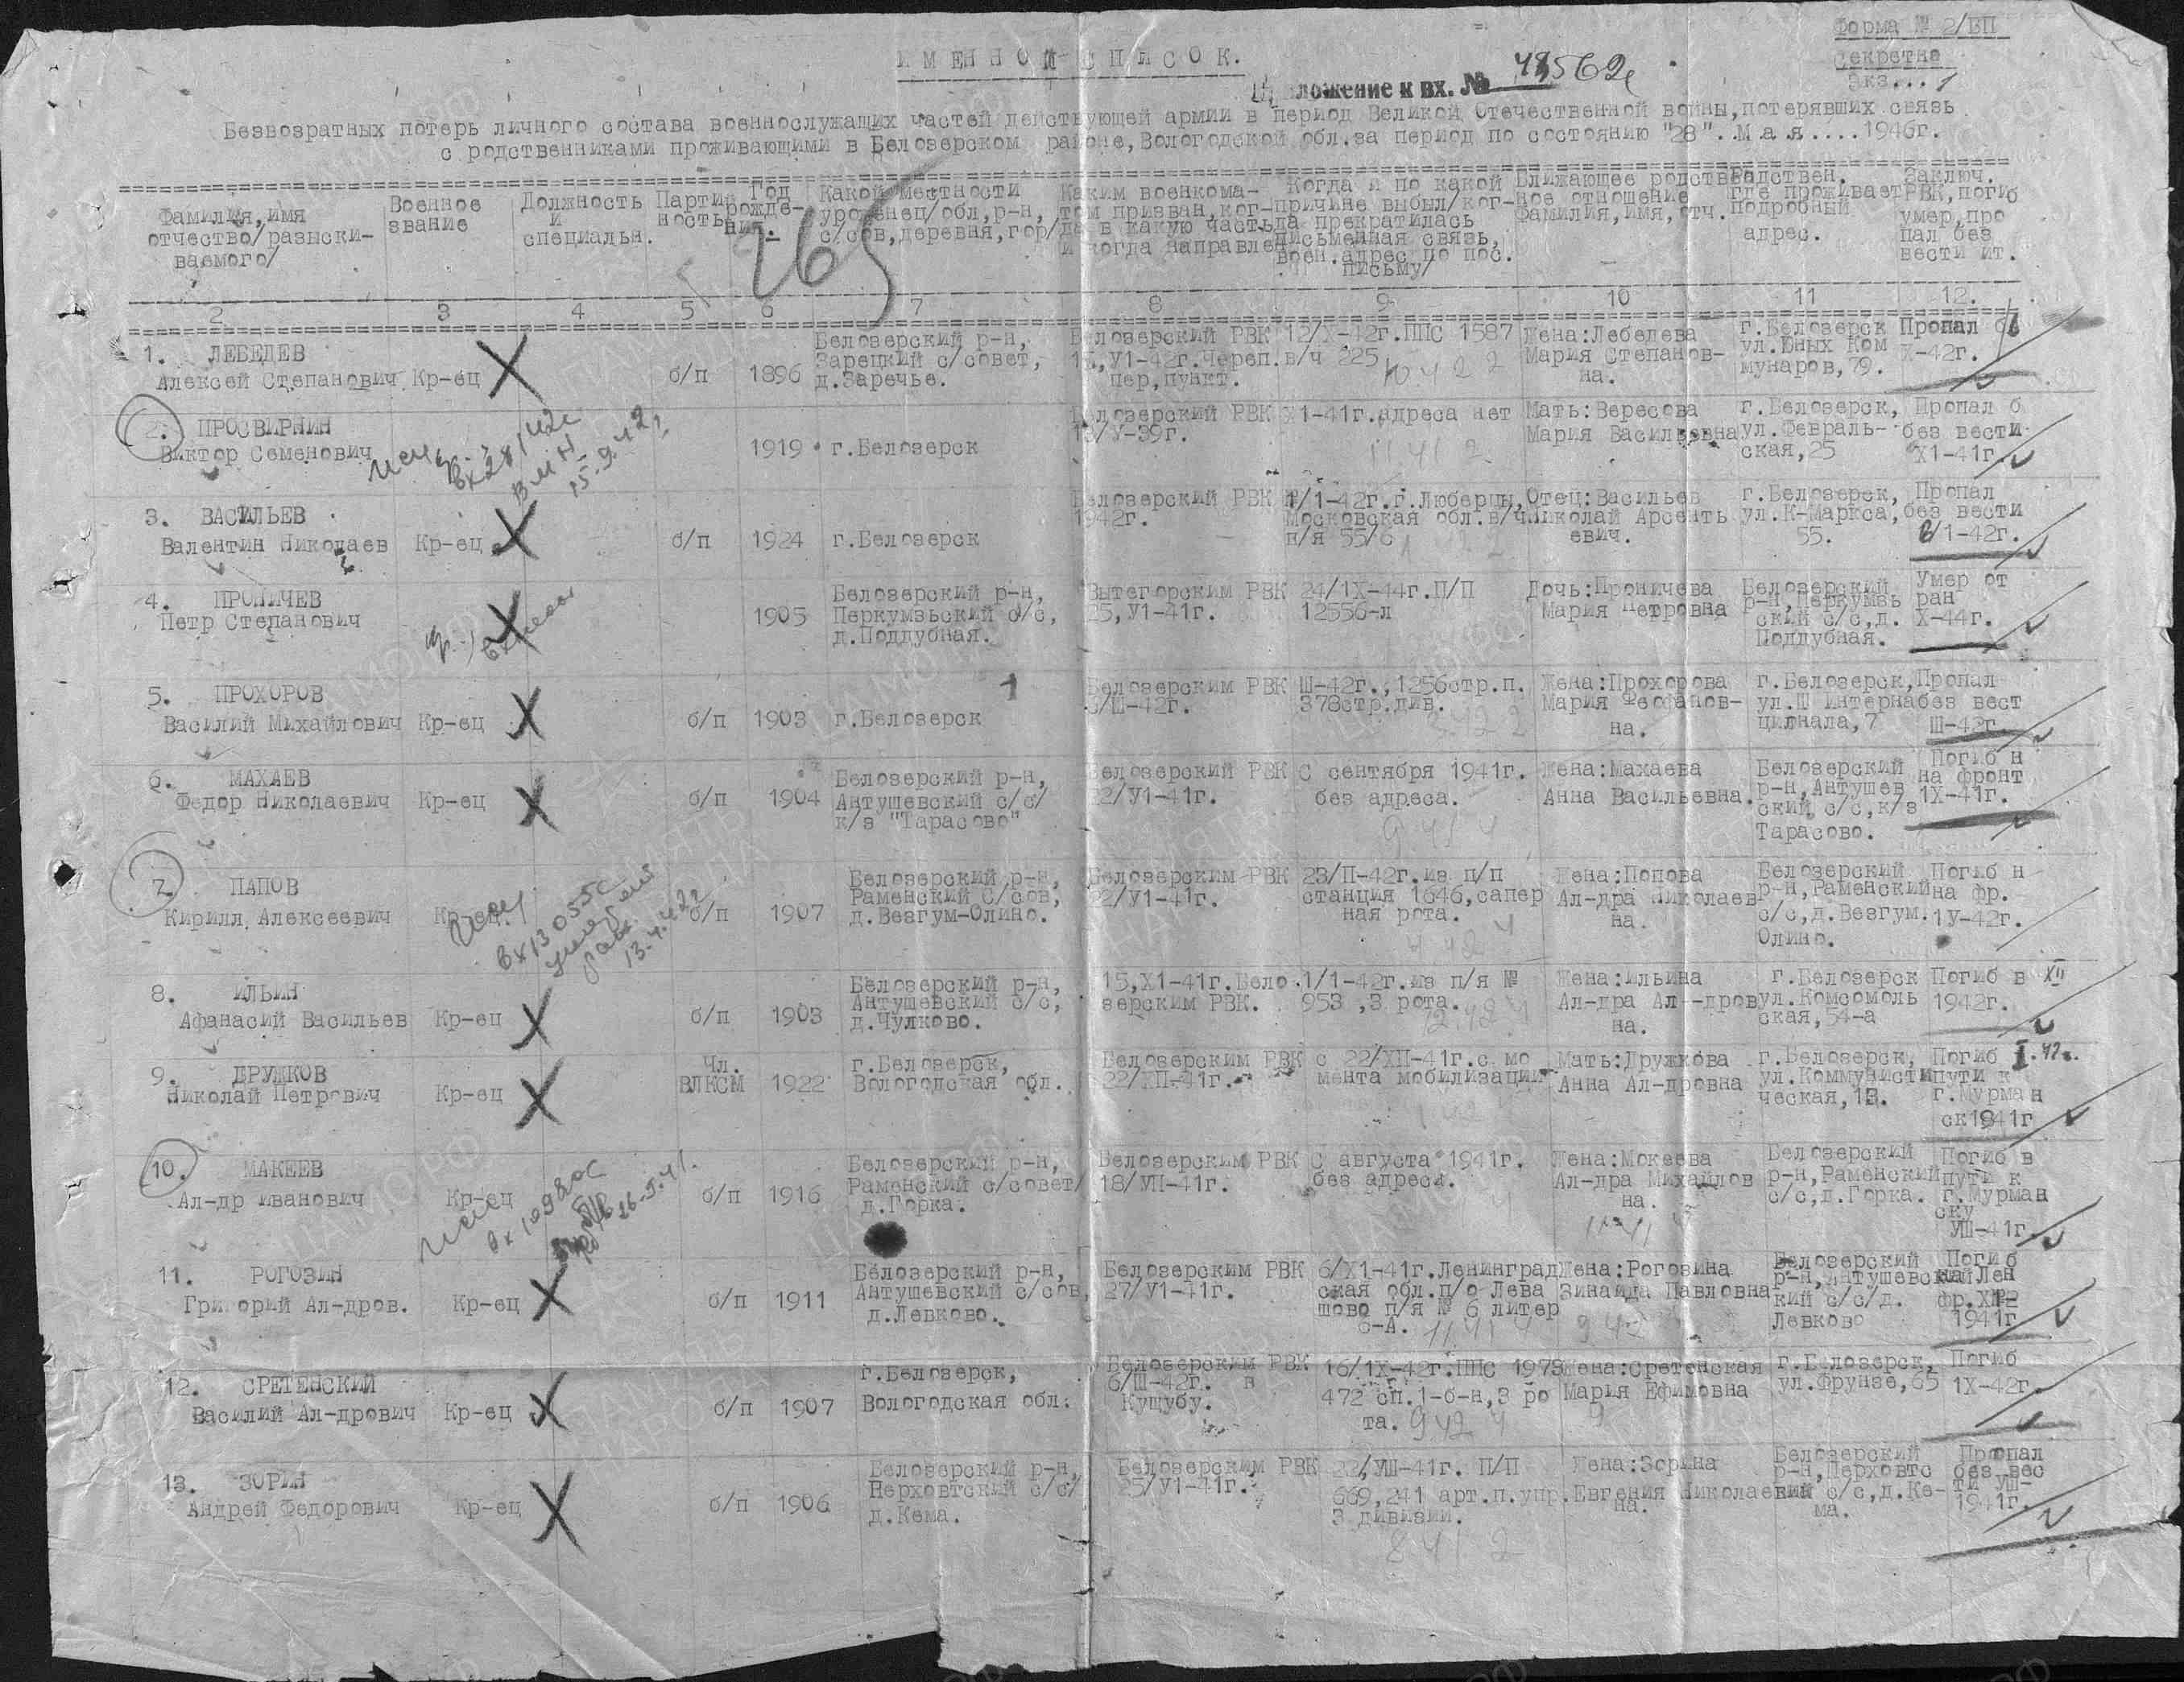 Форма № 2/БП
Секретно
Экз...1
ИМЕННОЙ СПИСОК.
ложение к вх. № 48562с
Безвозвратных потерь личного состава военнослужащих частей действующей армии в период Великой Отечественной войны,потерявших связь
с родственниками проживающими в Белозерском районе,Вологодской обл.за период по состоянию "28"..Мая....1946г.
265
Фамилия,имя отчество/разыскиваемого/
Военное звание
Должность и специальн.
Партийность
Год рождения.
Какой местности уроженец/обл,р-н, с/сов,деревня,гор/
Каким военкоматом призван,когда в какую часть и когда направлен
Когда и по какой причине выбыл/когда прекратилась письменная связь, воен.адрес по пос. письму/
Ближающее родственное отношение Фамилия,имя,отч.
Родствен. где проживает подробный адрес.
Заключ. РВК,погиб умер,про пал без вести ит.
2 3 4 5 6 7 8 9 10 11 12.
1. ЛЕБЕДЕВ
Алексей Степанович Кр-ец б/п 1896
Белозерский р-н,
Зарецкий с/совет,
д.Заречье.
Белозерский РВК
У1-42г.Череп.
пер,пункт.
12/Х-42г.ППС 1587
в/ч 225
10.42 2
Жена:Лебедева
Мария Степанов-
на.
г.Белозерск
ул.Юных Ком
мунаров,79.
Пропал б
Х-42г.
2. ПРОСВИРНИН
Виктор Семенович 1919 г.Белозерск
15.9.42г
Белозерский РВК
У-39г.
Х1-41г.адреса нет
11 41 2
Мать:Вересова
Мария Васильевна
г.Белозерск,
ул.Февраль-
ская,25
Пропал б
без вести
Х1-41г.
3. ВАСИЛЬЕВ
Валентин Николаев Кр-ец б/п 1924 г.Белозерск
Белозерский РВК
1942г.
/1-42г.г.Люберцы,
Московская обл.в/ч
п/я 55/6
Отец:Васильев
Николай Арсенть
евич.
г.Белозерск,
ул.К-Маркса,
55.
Пропал
без вести
/1-42г.
4. ПРОНИЧЕВ
Петр Степанович 1905
Белозерский р-н,
Перкумзьский с/с,
д.Поддубная.
Вытегорским РВК
25,У1-41г.
24/1Х-44г.П/П
12556-л
Дочь:Проничева
Мария Петровна
Белозерский
р-н,Перкумзь
ский с/с,д.
Поддубная.
Умер от
ран
Х-44г.
5. ПРОХОРОВ
Василий Михайлович Кр-ец б/п 1903 г.Белозерск
1
Белозерским РВК
/Ш-42г.
Ш-42г.,1256стр.п.
378стр.див.
3.42 2
Жена:Прохорова
Мария Феофанов-
на.
г.Белозерск,
ул.Ш Интерна
цилнала,7
Пропал
без вест
Ш-42г
6. МАХАЕВ
Федор Николаевич Кр-ец б/п 1904
Белозерский р-н,
Антушевский с/с/
к/з "Тарасово"
Белозерский РВК
22/У1-41г.
С сентября 1941г.
без адреса.
9 41 4
Жена:Махаева
Анна Васильевна.
Белозерский
р-н,Антушев
ский с/с,к/з
Тарасово.
Погиб н
на фронт
1Х-41г.
7. ПАПОВ
Кирилл Алексеевич Кр-ец б/п 1907
вх13055с
умер от
ран.
13.4.42г
Белозерский р-н,
Раменский С/сов,
д.Везгум-Олино.
Белозерским РВК
22/У1-41г.
23/П-42г.из п/п
станция 1646,сапер
ная рота.
4 42 4
Жена:Попова
Ал-дра Николаев
на.
Белозерский
р-н,Раменский
с/с,д.Везгум.
Олино.
Погиб н
на фр.
1У-42г.
8. ИЛЬИН
Афанасий Васильев Кр-ец б/п 1903
Белозерский р-н,
Антушевский с/с,
д.Чулково.
15,Х1-41г.Бело
зерским РВК.
1/1-42г.из п/я №
953 ,3 рота.
12.42 4
Жена:Ильина
Ал-дра Ал--дров
на.
г.Белозерск
ул.Комсомоль
ская,54-а
Погиб в XII
1942г.
9. ДРУЖКОВ
Николай Петрович Кр-ец Чл. ВЛКСМ 1922
г.Белозерск,
Вологодская обл.
Белозерским РВК
22/ХП-41г.
с 22/ХП-41г.с мо
мента мобилизации
1 42
Мать:Дружкова
Анна Ал-дровна
г.Белозерск,
ул.Коммунисти
ческая,13.
Погиб I.42г.
пути к
г.Мурман
ск1941г
10. МАКЕЕВ
Ал-др Иванович Кр-ец б/п 1916
Белозерский р-н,
Раменский с/совет/
д.Горка.
Белозерским РВК
18/УП-41г.
С августа 1941г.
без адреса.
Жена:Мокеева
Ал-дра Михайлов
на.
Белозерский
р-н,Раменский
с/с,д.Горка.
Погиб в
пути к
г.Мурман
ску
УШ-41г.
11. РОГОЗИН
Григорий Ал-дров. Кр-ец б/п 1911
Белозерский р-н,
Антушевский с/сов,
д.Левково.
Белозерским РВК
27/У1-41г.
6/Х1-41г.Ленинград
ская обл.п/о Лева
шово п/я № 6 литер
6-А. 11 41 4
Жена:Рогозина
Зинаида Павловна
9 42
Белозерский
р-н,Антушевс
кий с/с/д.
Левково
Погиб
на Лен
фр.
1941г
12. СРЕТЕНСКИЙ
Василий Ал-дрович Кр-ец б/п 1907
г.Белозерск,
Вологодская обл.
Белозерским РВК
6/Ш-42г. в
Кущубу.
16/1Х-42г.ППС 1973
472 сп.1-б-н,3 ро
та. 9 42 4
Жена:Сретенская
Мария Ефимовна
г.Белозерск,
ул.Фрунзе,65
Погиб
1Х-42г.
13. ЗОРИН
Андрей Федорович Кр-ец б/п 1906
Белозерский р-н,
Перховтский с/с/
д.Кема.
Белозерским РВК
25/У1-41г.
22/УШ-41г. П/П
669,241 арт.п.упр.
3 дивизии.
8 41 2
Жена:Зорина
Евгения Николаев
на.
Белозерский
р-н,Перховтс
кий с/с,д.Ке-
ма.
Пропал
без вес
ти УШ-
1941г.